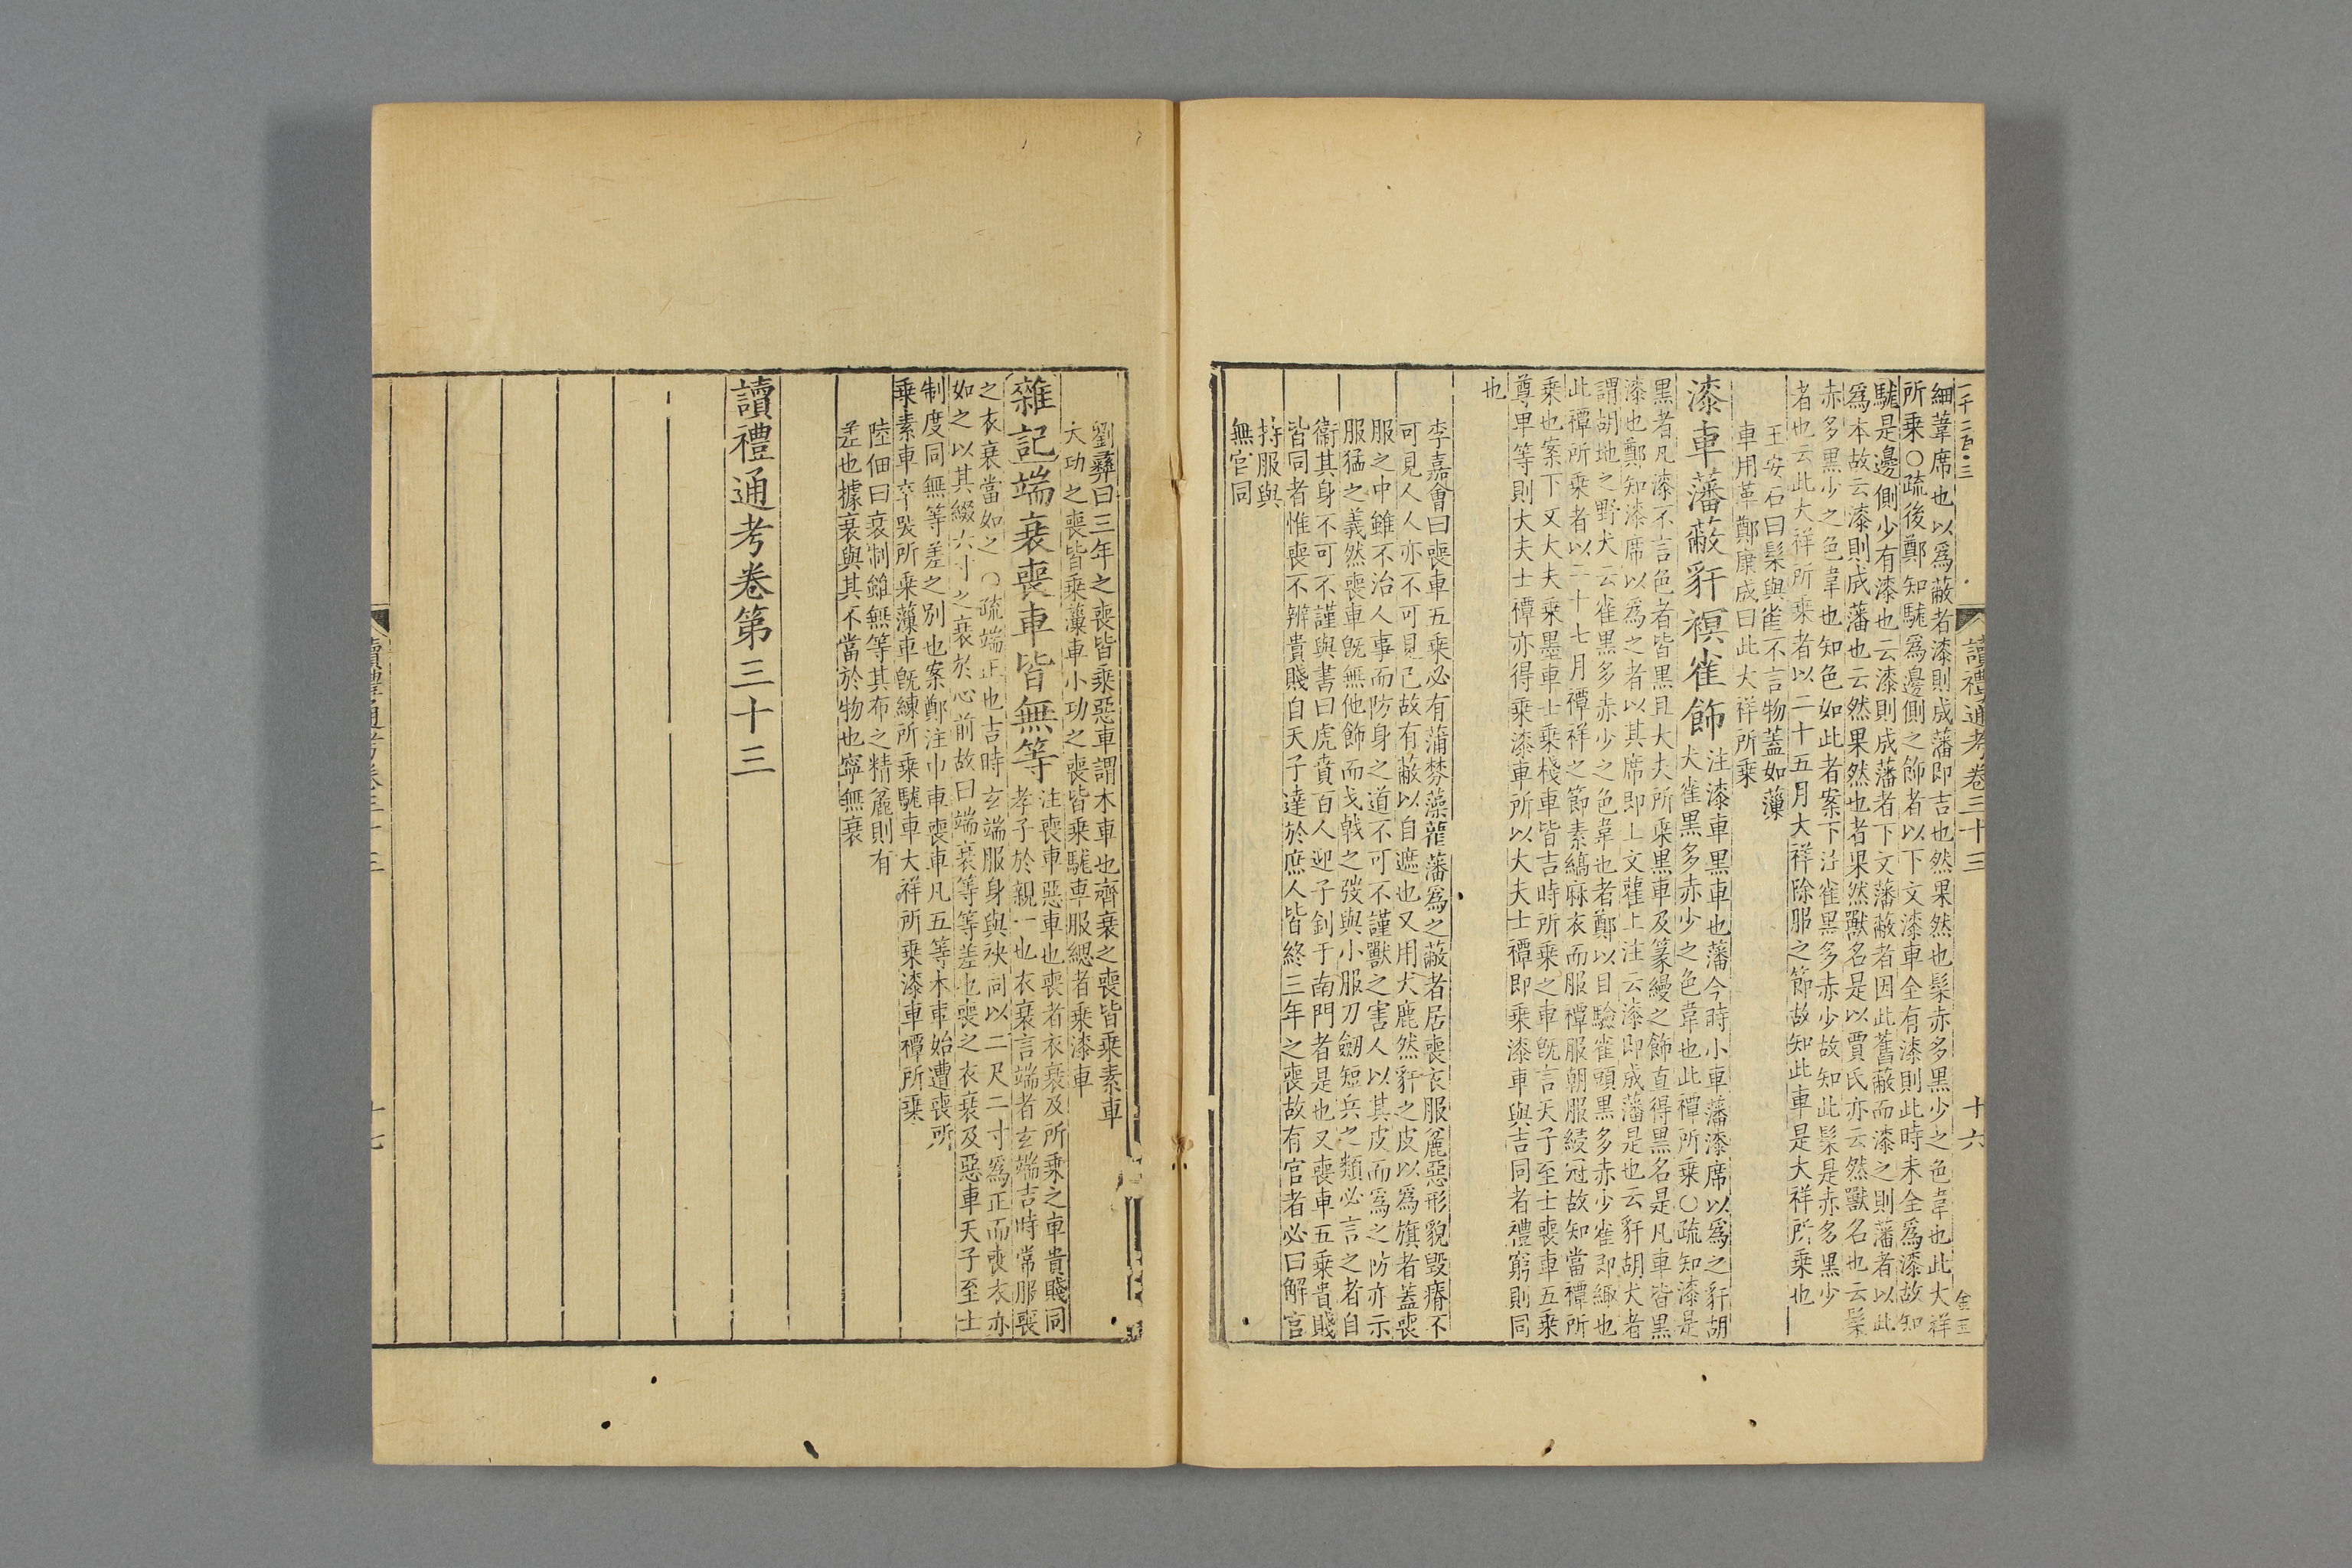 一千二百三
讀禮通考卷三十三
十六
細葦席也以爲蔽者漆則成藩即吉也然果然也髤赤多黑少之色韋也此大祥
所乘○疏後鄭知駹爲邊側之飾者以下文漆車全有漆則此時未全爲漆故知
駹是邊側少有漆也云漆則成藩者下文藩蔽者因此舊蔽而漆之則藩者以此
爲本故云漆則成藩也云然果然也者果然獸名是以賈氏亦云然獸名也云髤
赤多黑少之色韋也知色如此者案下注雀黑多赤少故知此髤是赤多黑少
者也云此大祥所乘者以二十五月大祥除服之節故知此車是大祥所乘也
王安石曰髤與雀不言物蓋如薻
車用革鄭康成曰此大祥所乘
漆車藩蔽豻𧜀雀飾注漆車黑車也藩今時小車藩漆席以爲之豻胡
犬雀黑多赤少之色韋也此禫所乘○疏知漆是
黑者凡漆不言色者皆黑且大夫所乘黑車及篆縵之飾直得黑名是凡車皆黑
漆也鄭知漆席以爲之者以其席即上文雚上注云漆即成藩是也云豻胡犬者
謂胡地之野犬云雀黑多赤少之色韋也者鄭以目驗雀頭黑多赤少雀即緅也
此禫所乘者以二十七月禫祥之節素縞麻衣而服禫服朝服綅冠故知當禫所
乘也案下文大夫乘墨車士乘棧車皆吉時所乘之車旣言天子至士喪車五乘
尊卑等則大夫士禫亦得乘漆車所以大夫士禫即乘漆車與吉同者禮窮則同
也
李嘉會曰喪車五乘必有蒲棼藻雚藩爲之蔽者居喪衣服麤惡形貌毁瘠不
可見人人亦不可見己故有蔽以自遮也又用犬鹿然豻之皮以爲旗者蓋喪
服之中雖不治人事而防身之道不可不謹獸之害人以其皮而爲之防亦示
服猛之義然喪車旣無他飾而戈戟之弢與小服刀劒短兵之類必言之者自
衞其身不可不謹與書曰虎賁百人迎子釗于南門者是也又喪車五乘貴賤
皆同者惟喪不辨貴賤自天子達於庶人皆終三年之喪故有官者必曰解官
持服與
無官同
劉彝曰三年之喪皆乘惡車謂木車也齊衰之喪皆乘素車
大功之喪皆乘薻車小功之喪皆乘駹車服緦者乘漆車
雜記端衰喪車皆無等注喪車惡車也喪者衣衰及所乘之車貴賤同
孝子於親一也衣衰言端者玄端吉時常服喪
之衣衰當如之○疏端正也吉時玄端服身與袂同以二尺二寸爲正而喪衣亦
如之以其綴六寸之衰於心前故曰端衰等等差也喪之衣衰及惡車天子至士
制度同無等差之別也案鄭注巾車喪車凡五等木車始遭喪所
乘素車卒哭所乘薻車旣練所乘駹車大祥所乘漆車禫所乘
陸佃曰衰制雖無等其布之精麤則有
差也據衰與其不當於物也寧無衰
讀禮通考卷第三十三
讀禮通考卷三十三
十七